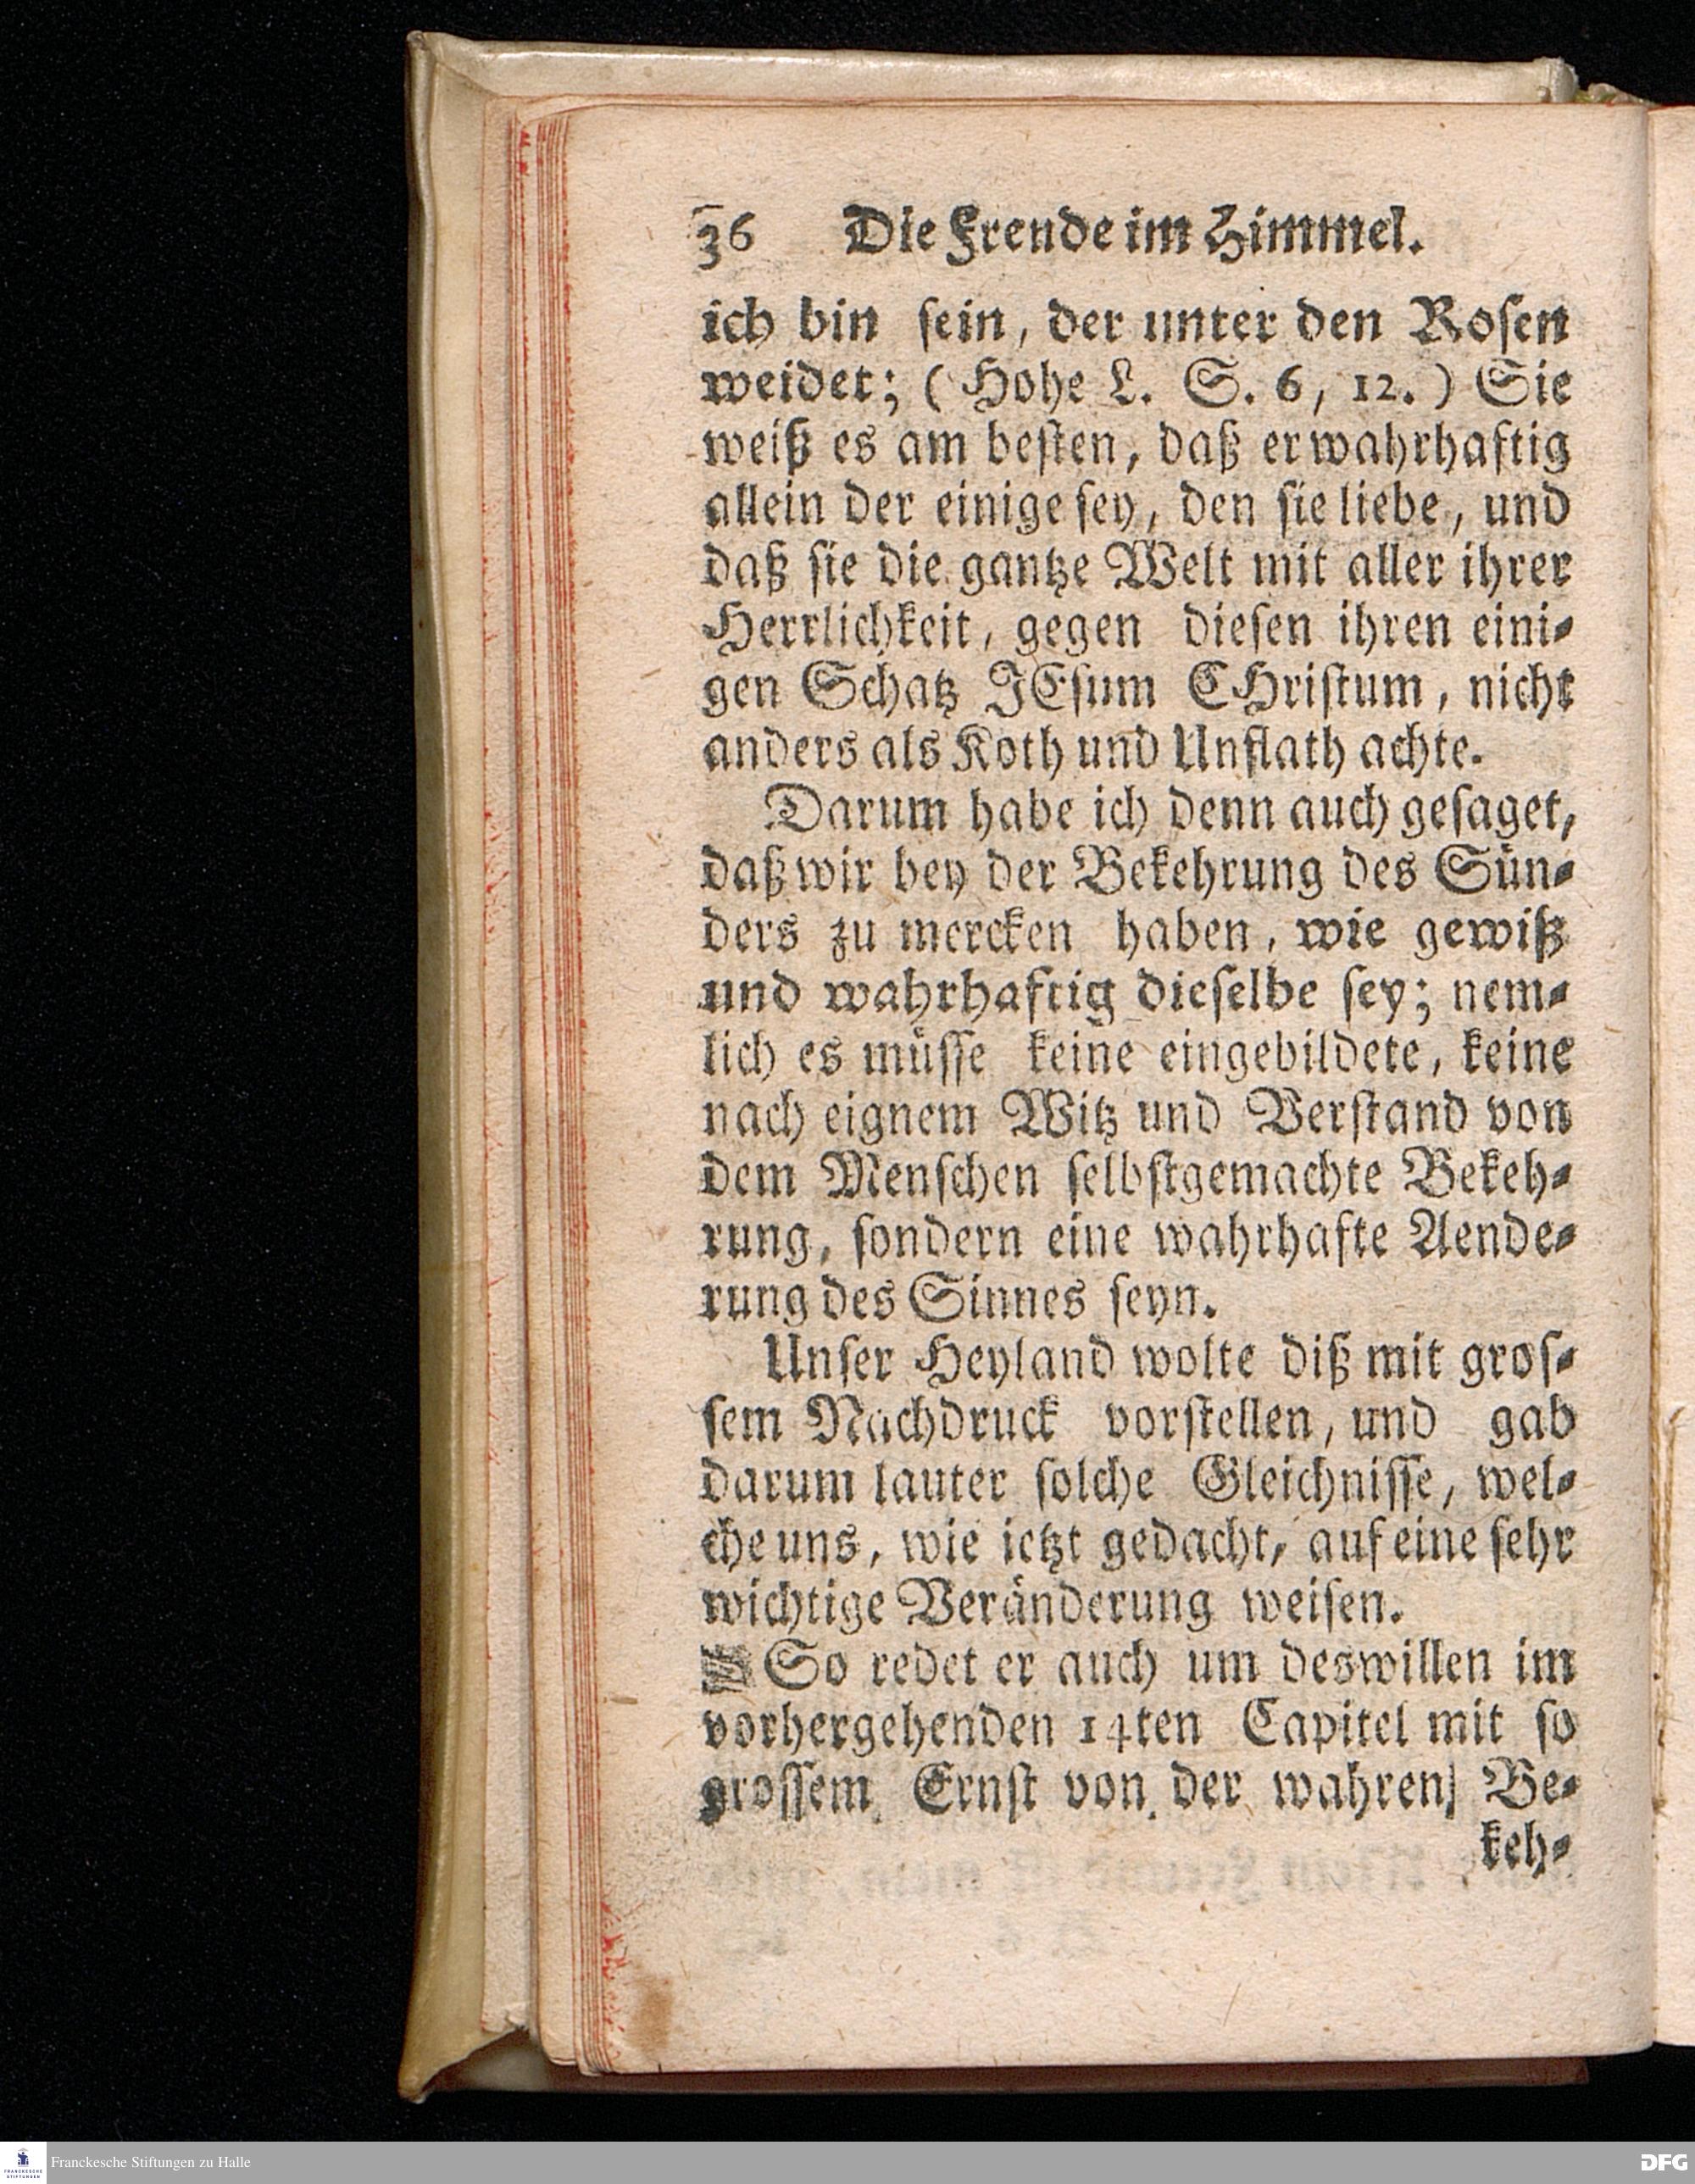 36 Die Frende im Himmel.
ich bin ſein, der unter den Roſen
weidet; (Hohe L. S. 6, 12.) Sie
weiß es am beſten, daß er wahrhaftig
allein der einige ſey, den ſie liebe, und
daß ſie die gantze Welt mit aller ihrer
Herrlichkeit, gegen dieſen ihren eini-
gen Schatz JEſum CHriſtum, nicht
anders als Koth und Unflath achte.
Darum habe ich denn auch geſaget,
daß wir bey der Bekehrung des Sün-
ders zu mercken haben, wie gewiß
und wahrhaftig dieſelbe ſey; nem-
lich es müſſe keine eingebildete, keine
nach eignem Witz und Verſtand von
dem Menſchen ſelbſtgemachte Bekeh-
rung, ſondern eine wahrhafte Aende-
rung des Sinnes ſeyn.
Unſer Heyland wolte diß mit groſ-
ſem Nachdruck vorſtellen, und gab
darum lauter ſolche Gleichniſſe, wel-
che uns, wie ietzt gedacht, auf eine ſehr
wichtige Veränderung weiſen.
So redet er auch um deswillen im
vorhergehenden 14ten Capitel mit ſo
groſſem Ernſt von der wahren Be-
keh-
Franckesche Stiftungen zu Halle
FRANCKESCHE
STIFTUNGEN
DFG